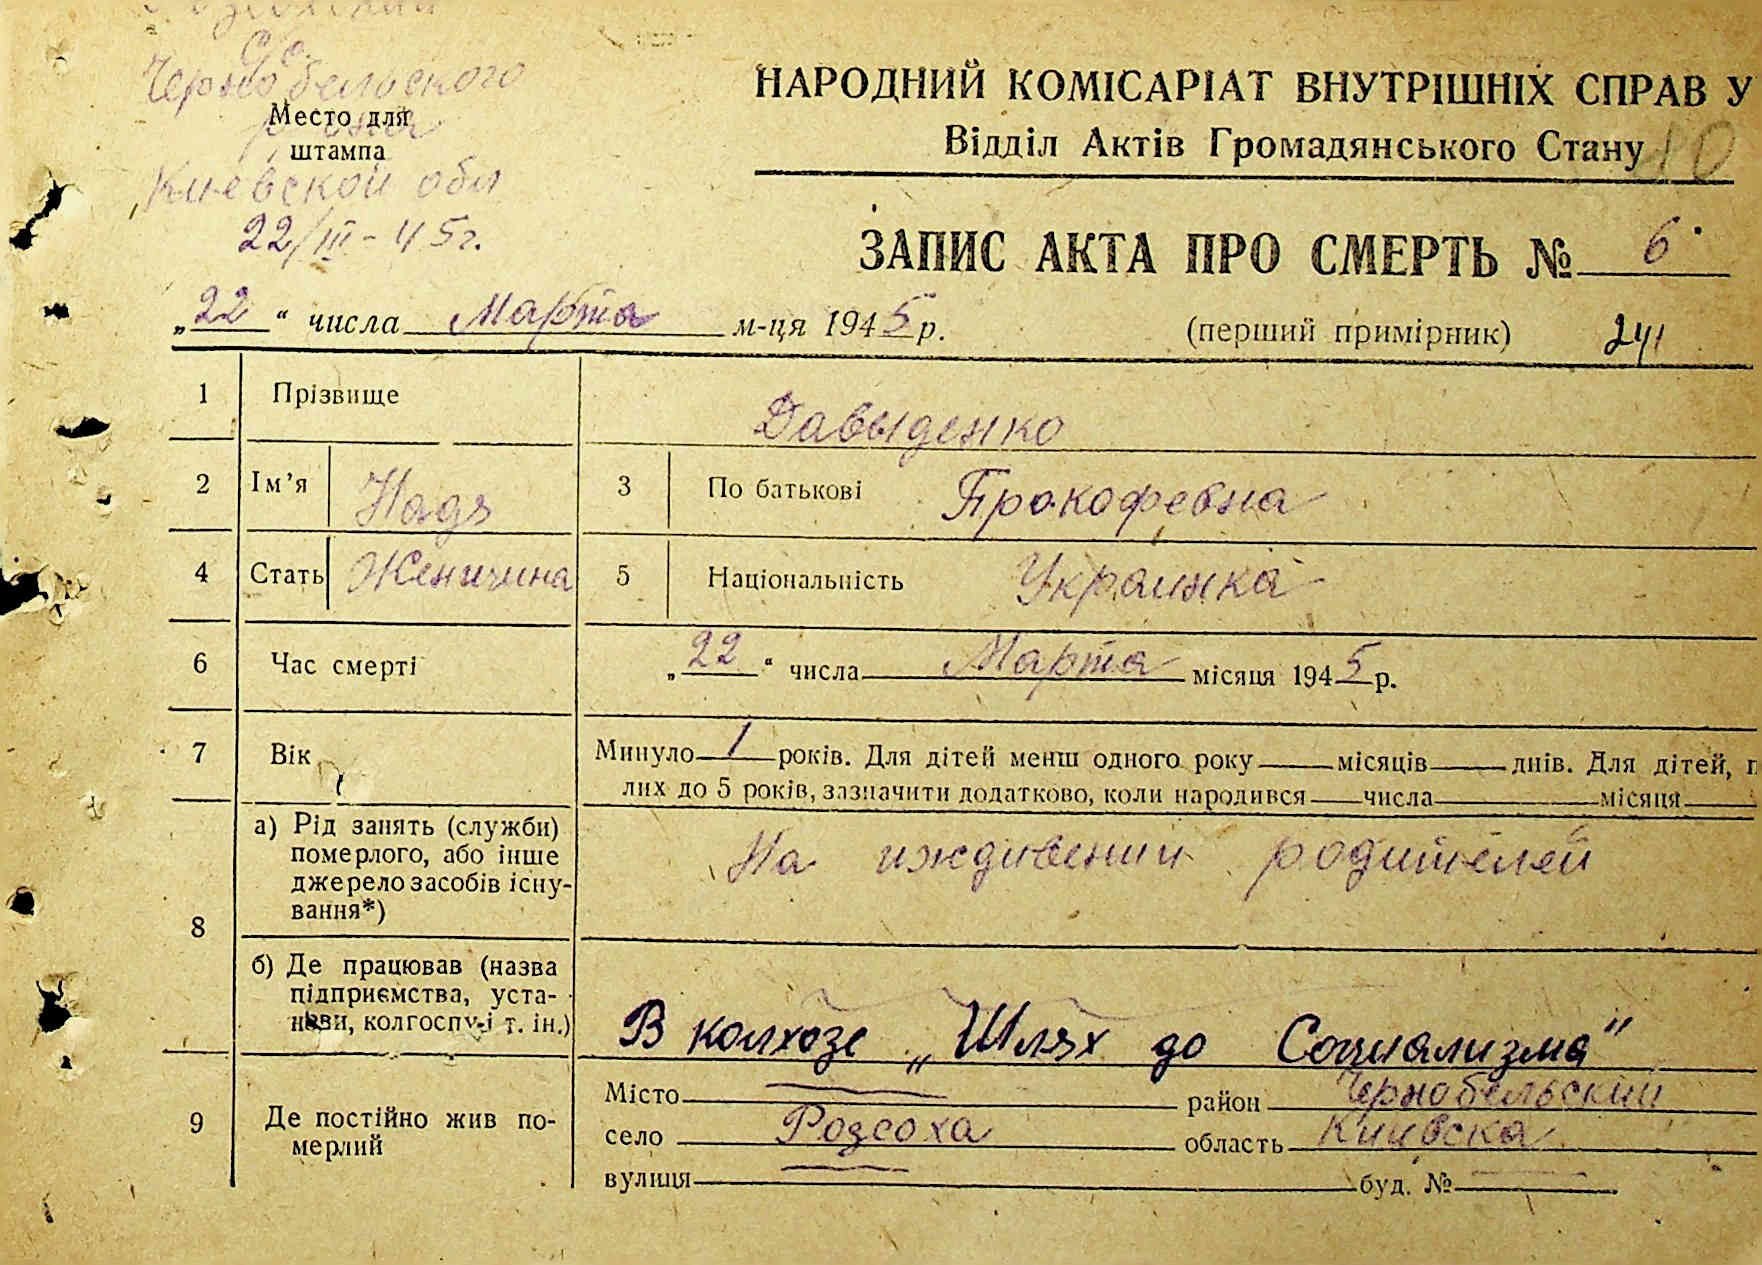 С/с.
Чернобельского
Место для
района
штампа
Киевской обл
22/III-45г.
НАРОДНИЙ КОМІСАРІАТ ВНУТРІШНІХ СПРАВ У
Відділ Актів Громадянського Стану
10
ЗАПИС АКТА ПРО СМЕРТЬ № 6
„22“ числа Марта м-ця 1945 р.
(перший примірник) 241
1 Прізвище Давыденко
2 Ім'я Надя 3 По батькові Прокофевна
4 Стать Женщина 5 Національність Украинка
6 Час смерті „22“ числа Марта місяця 1945 р.
7 Вік Минуло 1 років. Для дітей менш одного року місяців днів. Для дітей, п
лих до 5 років, зазначити додатково, коли народився числа місяця
8 а) Рід занять (служби)
померлого, або інше
джерело засобів існу-
вання*)
На иждивении родителей
б) Де працював (назва
підприємства, уста-
нови, колгоспу і т. ін.)
В колхозе „Шлях до Социализма"
9 Де постійно жив по-
мерлий
Місто — район Чернобельский
село Розсоха область Киивска
вулиця — буд. № —